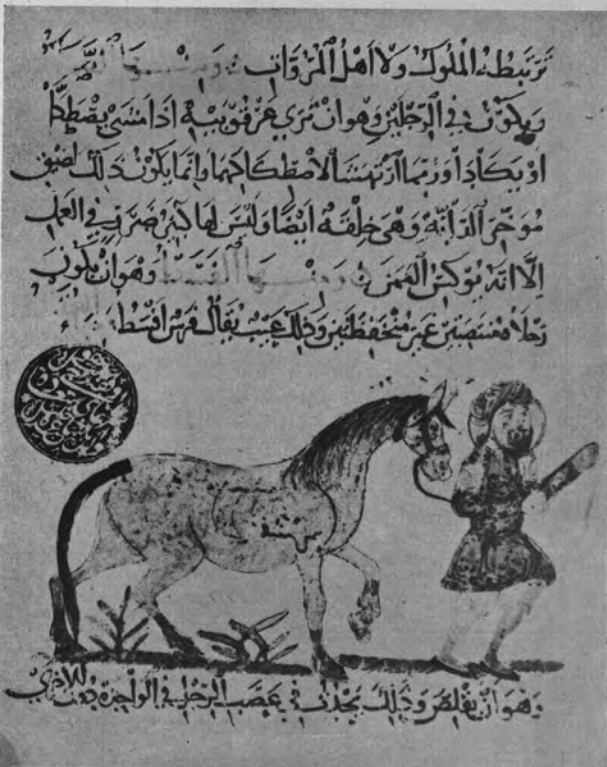 تَرتَبطهُ الملُوك وَلا أهْلُ المرْوَاتِ وَمِنْهَا
وَيكوُن في الرّجلَين وَهوَ انْ تَرَي عَرقوُبَيْهِ اذَا مَشَي يصْطَكّا
اوْ يكَادَا وَرُبّما لاصْطِكَاكِهمَا وَانّما يكوُنُ ذَلِكَ لضيْقِ
مُوَخّر الدّابّةِ وَهيَ خِلْقَة ايْضًا وَليْسَ لهَا كبيْر ضرَر في العَمل
إلّا انّهُ يوُكسُ الثمنَ وَمِنْهَا القسَط وَهوَ انْ يَكوُنَ
رجلاهُ مُنتصِبتَين غَير وَذَلِكَ عَيْب يُقَالُ فرَس اقسَط
وَهوَ انْ يقْلِصَ وَذَلِكَ يَحْدُث في عَصَب الرّجْل في الوَاحِدة دُون الاخْرَي